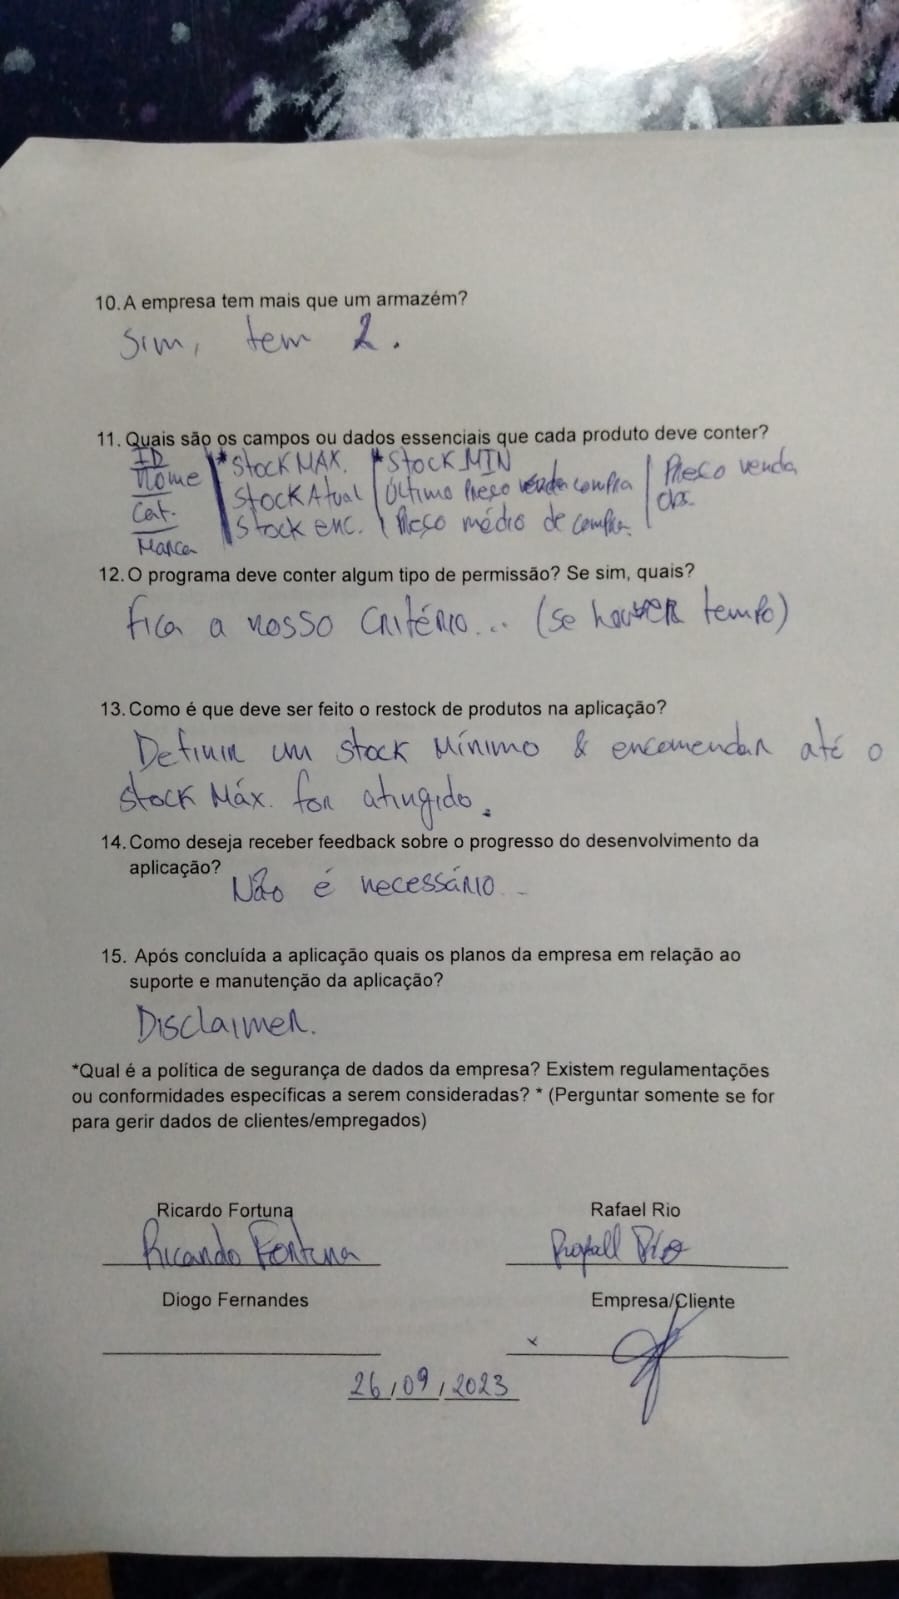 10. A empresa tem mais que um armazém?
Sim, tem 2.
11. Quais são os campos ou dados essenciais que cada produto deve conter?
ID
Nome
Cat.
Marca
* Stock MAX.
Stock Atual
Stock enc.
* Stock MIN
Último Preço compra
Preço médio de compra.
Preço venda
Obs.
12. O programa deve conter algum tipo de permissão? Se sim, quais?
Fica a nosso critério... (se houver tempo)
13. Como é que deve ser feito o restock de produtos na aplicação?
Definir um stock Mínimo & encomendar até o
stock Máx. for atingido.
14. Como deseja receber feedback sobre o progresso do desenvolvimento da
aplicação?
Não é necessário...
15. Após concluída a aplicação quais os planos da empresa em relação ao
suporte e manutenção da aplicação?
Disclaimer.
*Qual é a política de segurança de dados da empresa? Existem regulamentações
ou conformidades específicas a serem consideradas? * (Perguntar somente se for
para gerir dados de clientes/empregados)
Ricardo Fortuna Rafael Rio
Ricardo Fortuna Rafael Rio
Diogo Fernandes Empresa/Cliente
x
26/09/2023